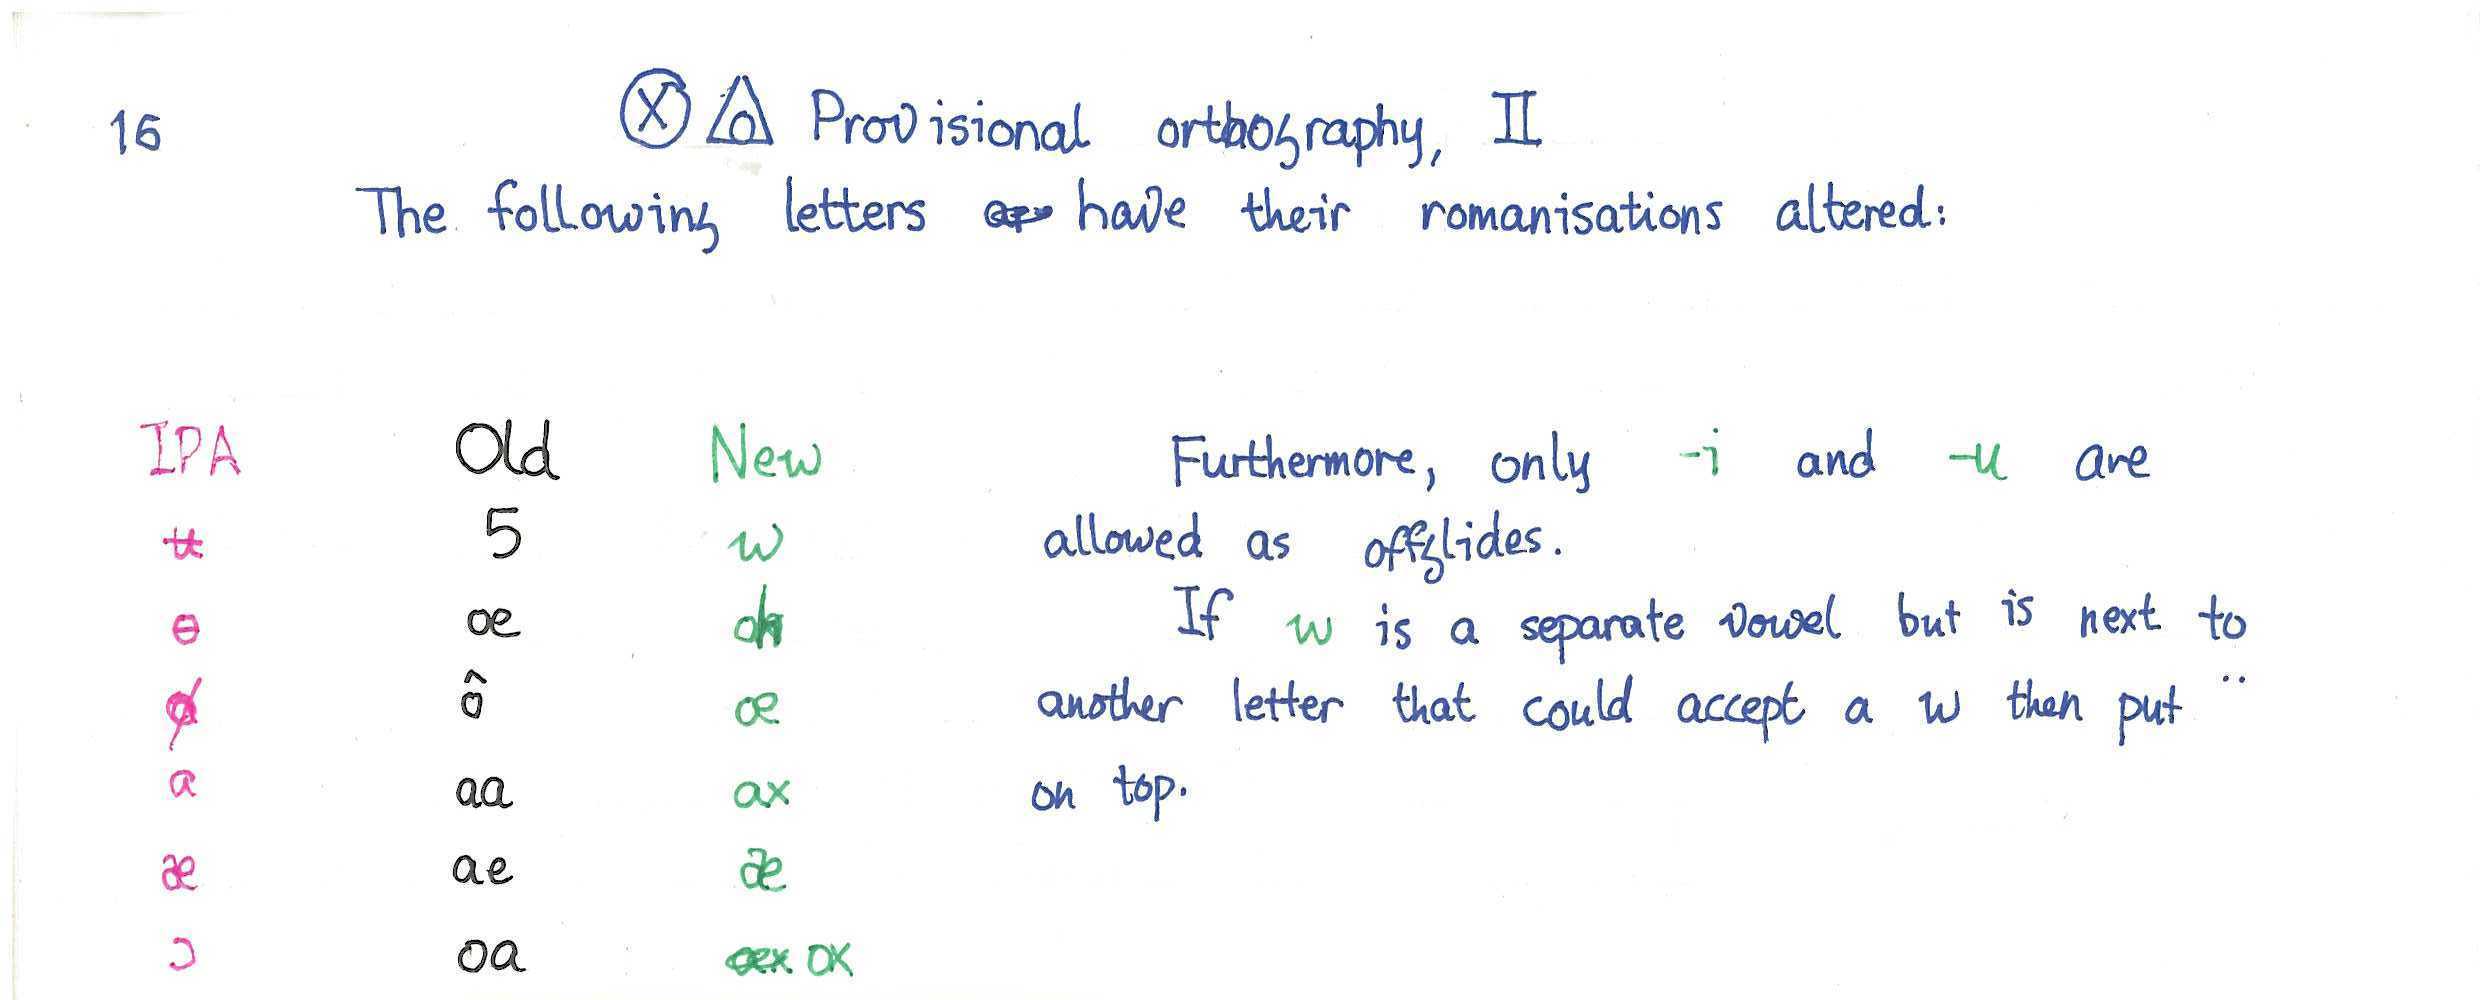 16
Ⓧ Provisional orthography, II
The following letters have their romanisations altered:
IPA Old New
ʉ 5 w
ɵ oe
ô œ
a aa ax
æ ae æ
ɔ oa ox
Furthermore, only -i and -u are
allowed as offglides.
If w is a separate vowel but is next to
another letter that could accept a w then put ¨
on top.